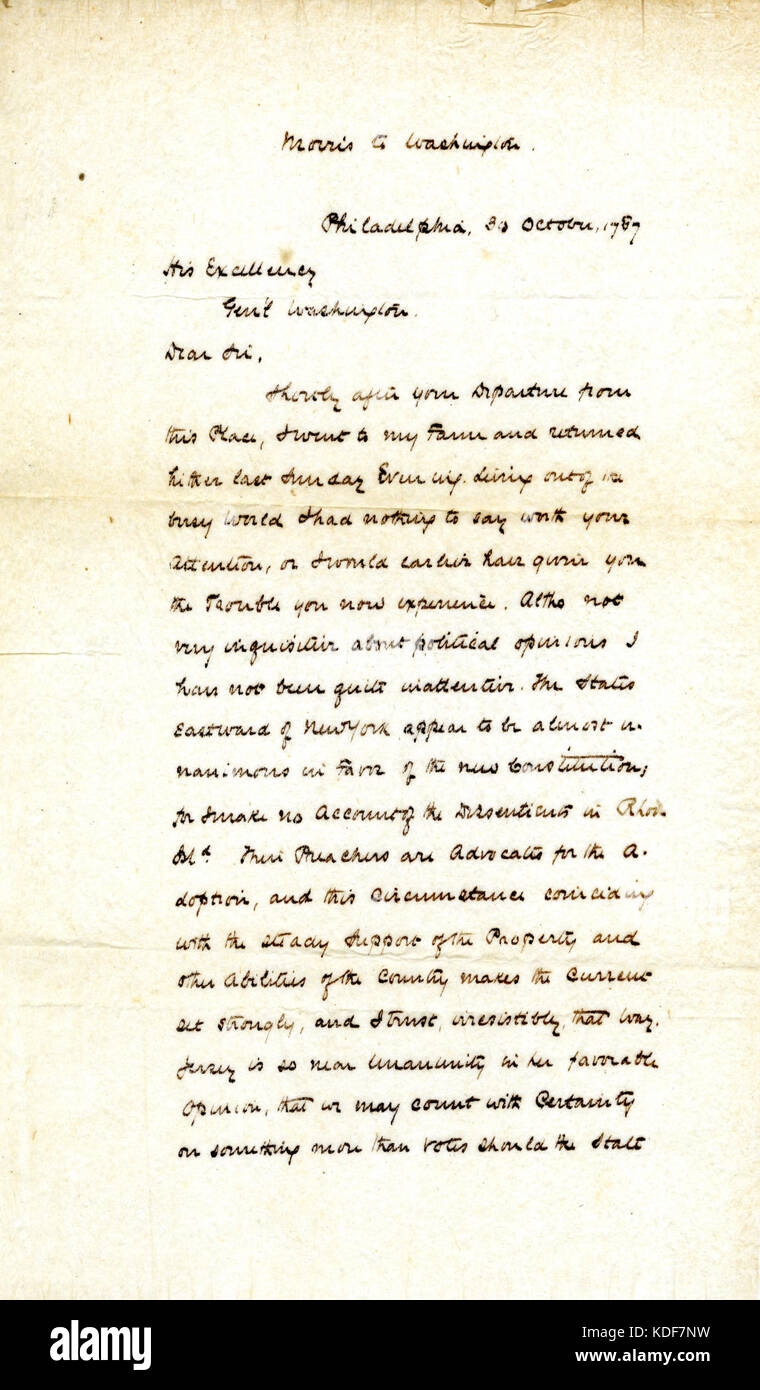 Morris to Washington.
Philadelphia, 30 October, 1787
His Excellency
Gen'l Washington.
Dear Sir,
Shortly after your Departure from
this Place, I went to my Farm and returned
hither last Sunday Evening. Living out of the
busy World I had nothing to say worth your
Attention, or I would earlier have given you
the Trouble you now experience. Altho not
very inquisitive about political opinions I
have not been quite inattentive. The States
Eastward of New York appear to be almost u-
nanimous in Favor of the new Constitution;
for I make no Account of the Dissentients in Rhode
Isl.d Their Preachers are Advocates for the A-
doption, and this Circumstance coinciding
with the steady Support of the Property and
other Abilities of the Country makes the Current
set strongly, and I trust, irresistibly, that way.
Jersey is so near Unanimity in her favorable
Opinion, that we may count with Certainty
on something more than Votes should the State
alamy
Image ID: KDF7NW
www.alamy.com